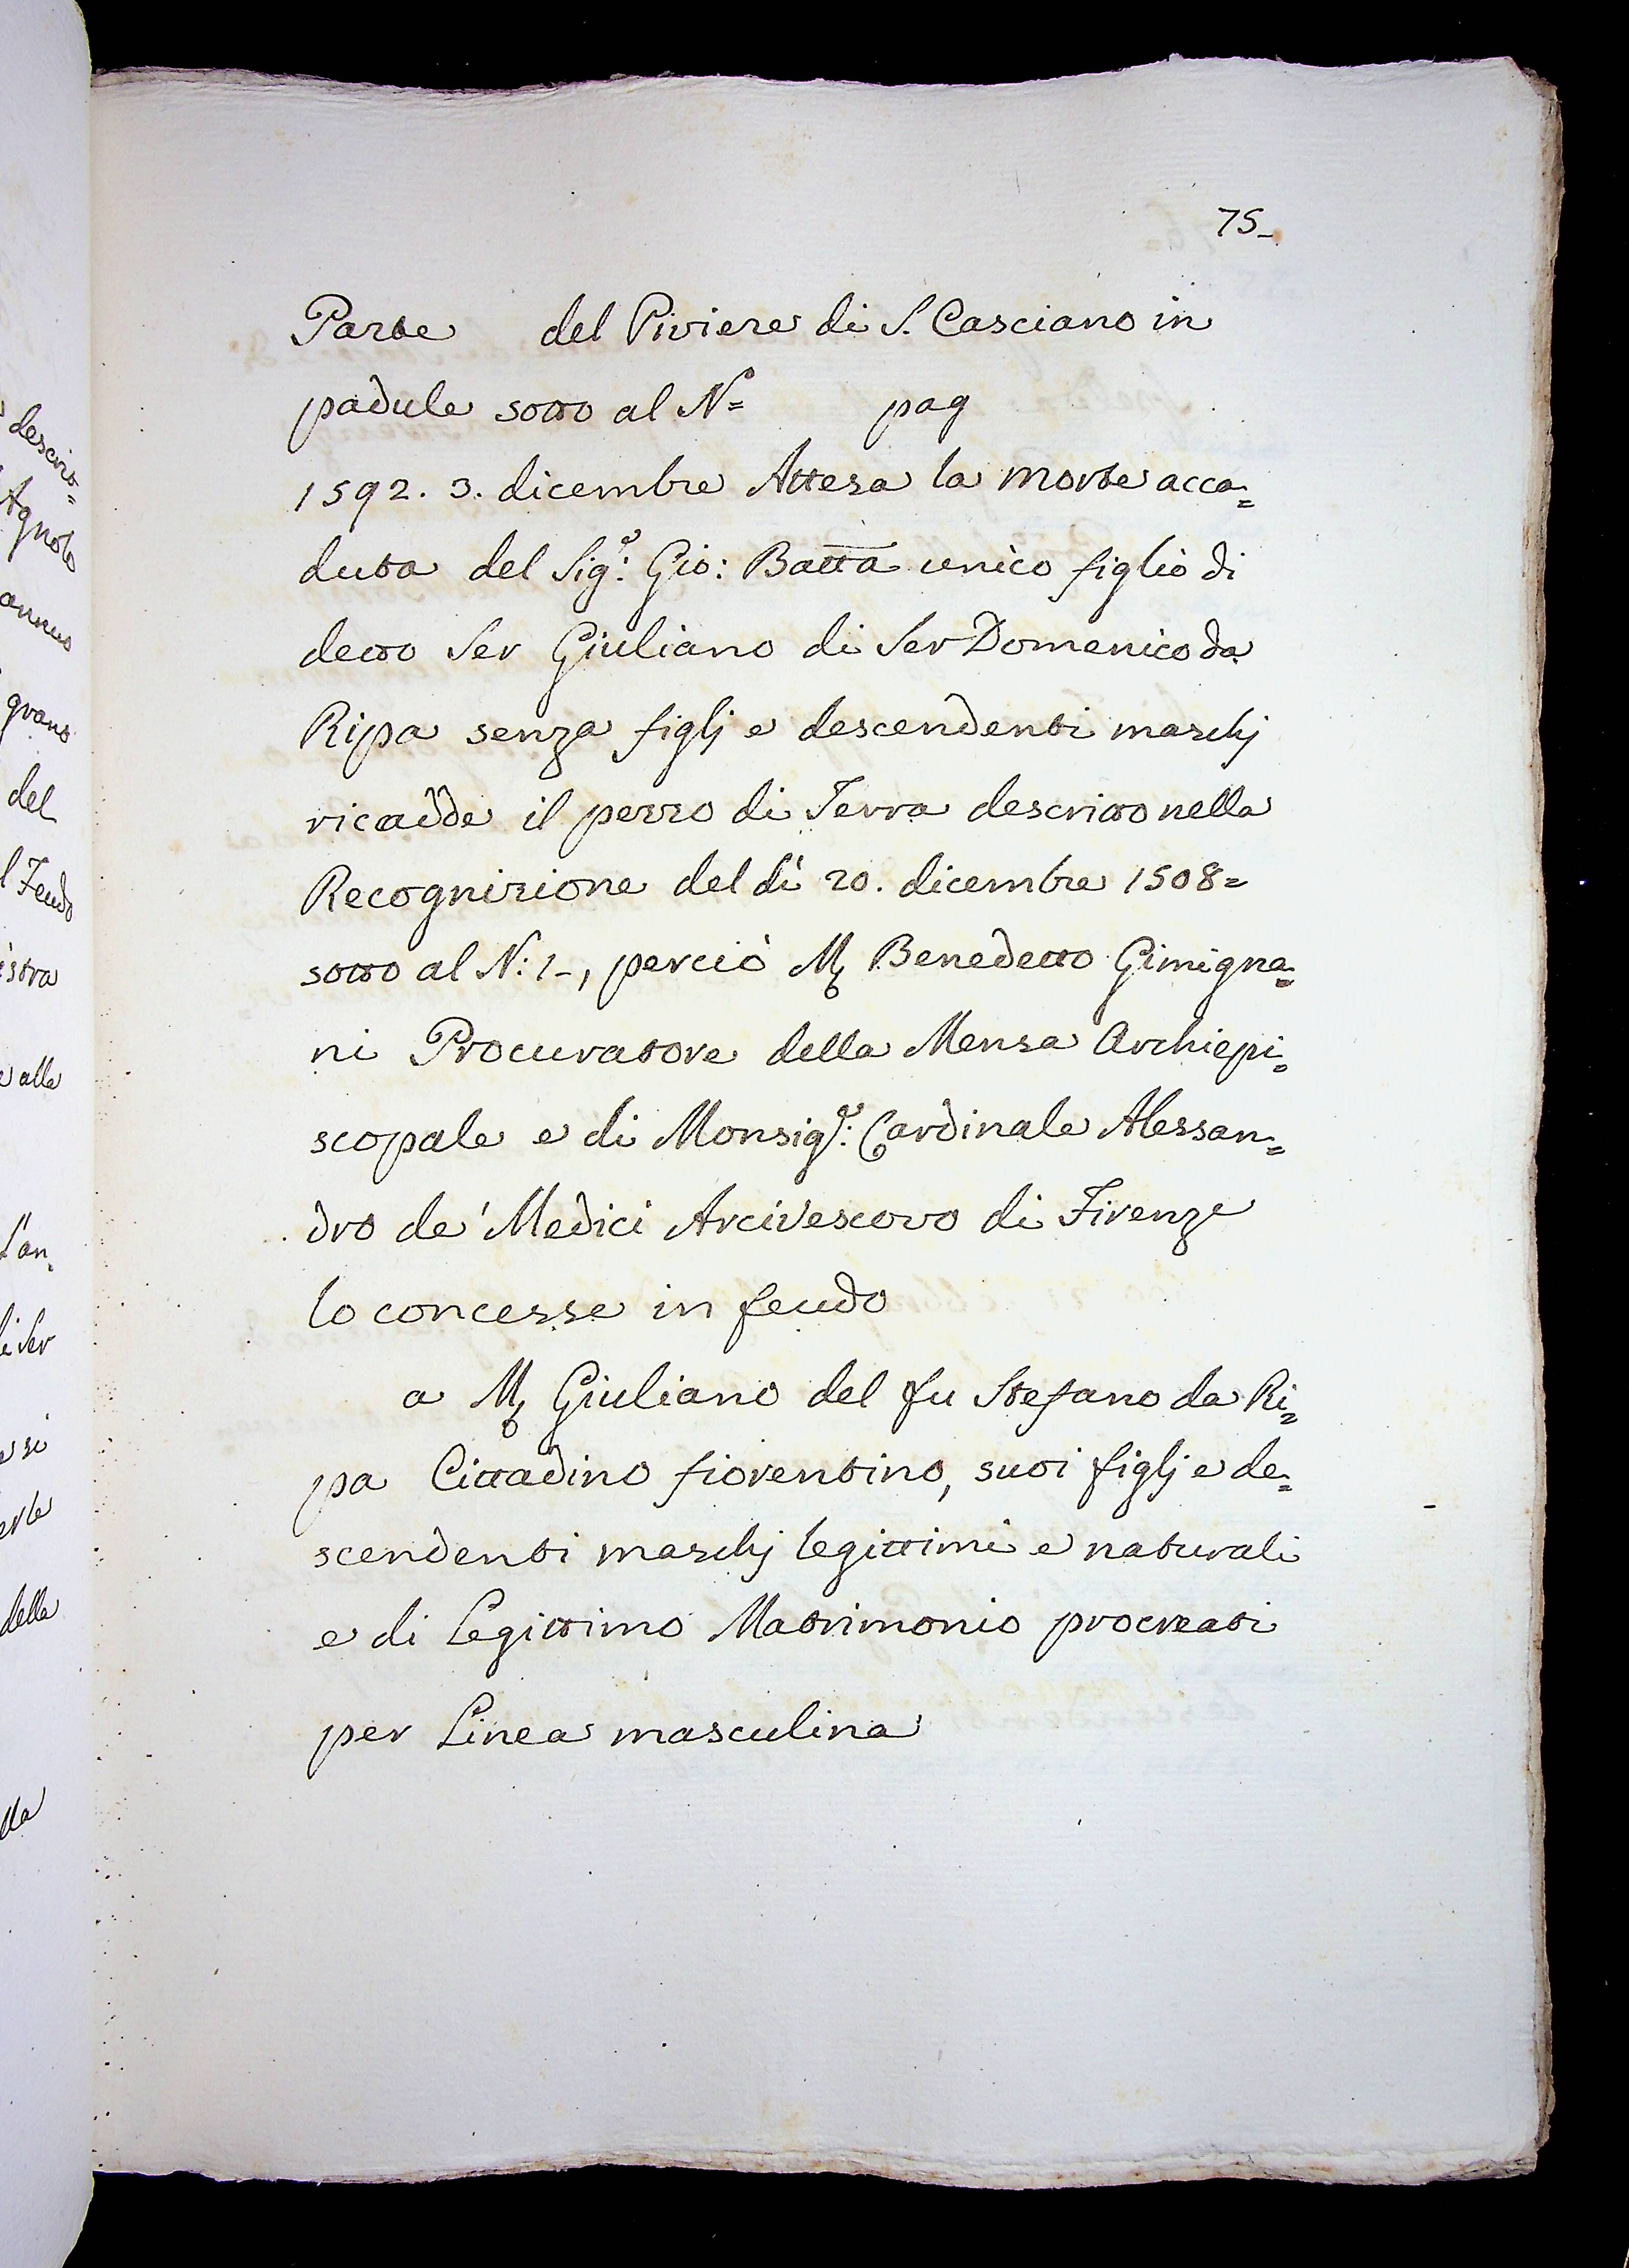 75_
Parte del Piviere di S. Casciano in
padule sotto al Nº= pag
1592. 3. dicembre Attesa la morte acca=
duta del Sigʳ: Gio: Batta unico figlio di
detto Ser Giuliano di Ser Domenico da
Ripa senza figlj e descendenti maschj
ricadde il pezzo di Terra descritto nella
Recognizione del dì 20. dicembre 1508=
sotto al N: 1-, perciò M Benedetto Gimigna=
ni Procuratore della Mensa Archiepi=
scopale e di Monsigʳ: Cardinale Alessan=
dro de' Medici Arcivescovo di Firenze
lo concesse in feudo
a M Giuliano del fu Stefano da Ri=
pa Cittadino fiorentino, suoi figlj e de=
scendenti maschj legittimi e naturali
e di Legittimo Matrimonio procreati
per Linea masculina
descrit=
Agnolo
annuo
grano
del
l Feudo
istra
e alla
l'an=
i Ser
si
della